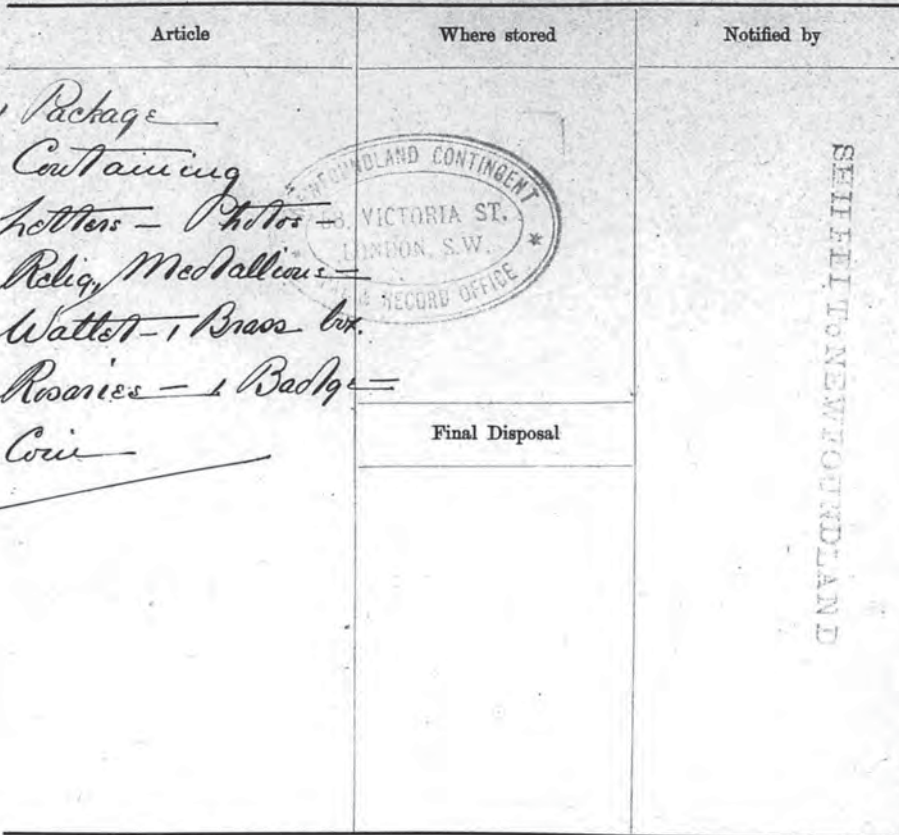 Article
Where stored
Notified by
1 Package
Containing
Letters – Photos –
Relig. Medallions –
Wallet – 1 Brass box.
Rosaries – 1 Badge –
Coin
NEWFOUNDLAND CONTINGENT
58, VICTORIA ST.
LONDON, S.W.
& RECORD OFFICE
Final Disposal
TO NEWFOUNDLAND